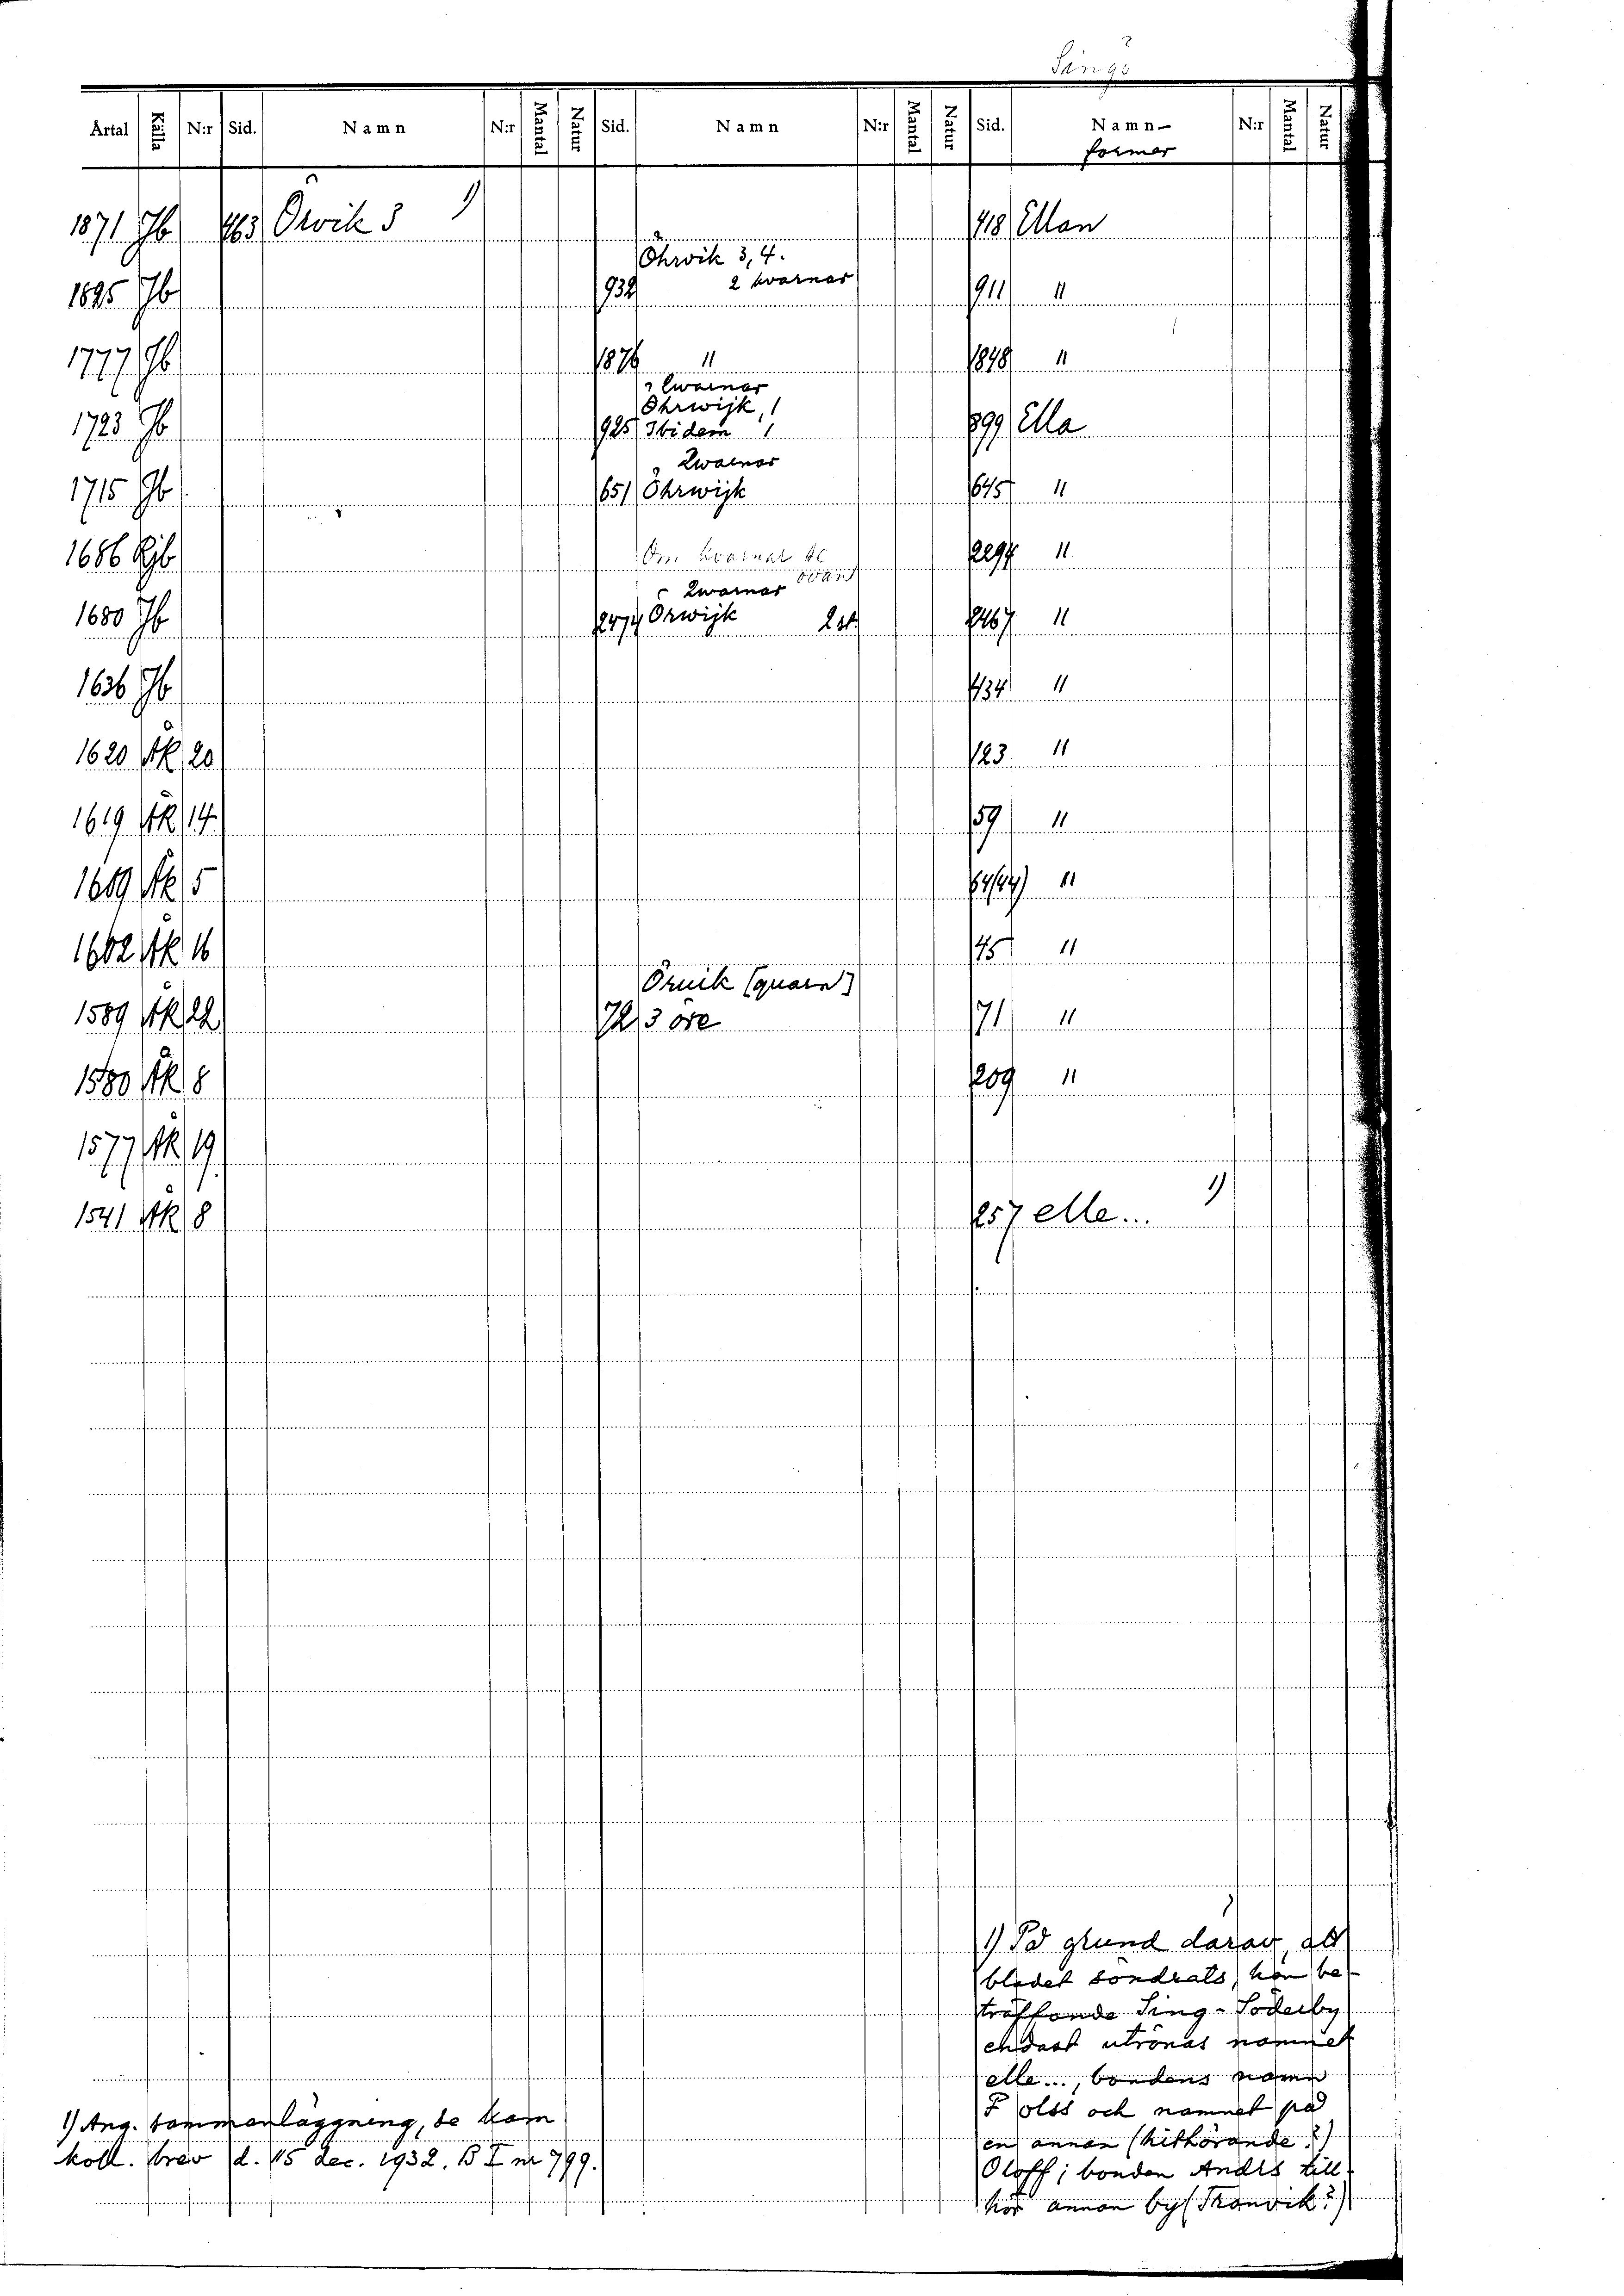 Singö
Årtal Källa N:r Sid. Namn N:r Mantal Natur Sid. Namn N:r Mantal Natur Sid. Namn- N:r Mantal Natur
former
1871 Jb 463 Örvik 3 1) 418 Ellan
Öhrvik 3, 4.
1825 Jb 932 2 kvarnar 911 "
1777 Jb 1876 " 1848 "
Qwarnar
Öhrwijk, 1
1723 Jb 925 Ibidem 1 899 Ella
Qwarnar
1715 Jb 651 Öhrwijk 645 "
1686 Rjb Om kvarnar se ovan 2294 "
Qwarnar
1680 Jb 2474 Örwijk 2 st. 2467 "
1636 Jb 434 "
1620 ÄK 20 123 "
1619 ÄK 14 59 "
1609 ÄK 5 64(44) "
1602 ÄK 16 45 "
Öruik (quarn)
1589 ÄK 22 72 3 öre 71 "
1580 ÄK 8 209 "
1577 ÄK 19
1541 ÄK 8 257 elle... 1)
1) På grund därav, att
bladet söndrats, kan be-
träffande Sing-Söderby
endast utrönas namnet
elle..., bondens namn
F olss och namnet på
en annan (hithörande?)
Oloff; bonden Anders till-
hör annan by (Tranvik?)
1) Ang. sammanläggning, se kam
koll. brev d. 15 dec. 1932. B I nr 799.